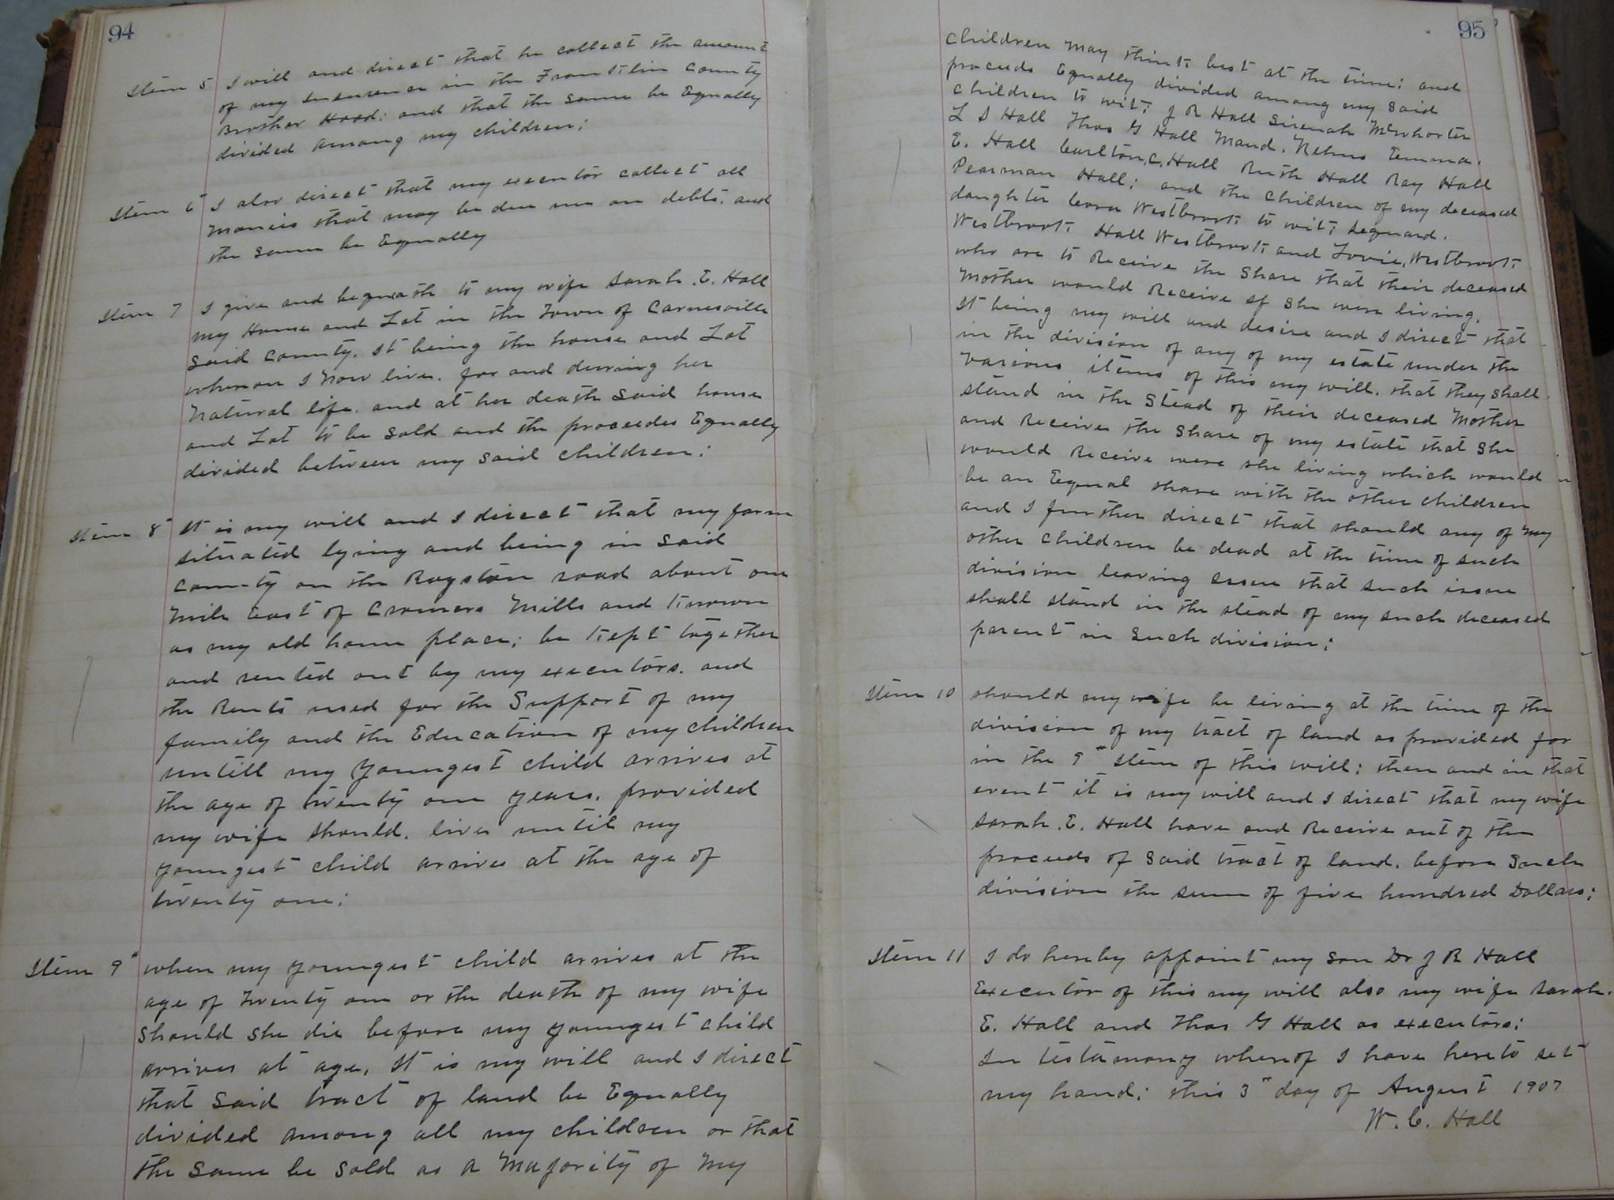 94
Item 5 I will and direct that he collect the amount
of my Insurence in the Franklin County
Brother Hood; and that the same be Equally
divided among my children;
Item 6" I also direct that my executor collect all
monies that may be due me on debts. and
the same be Equally
Item 7 I give and bequeath to my wife Sarah. E. Hall
my House and Lot in the Town of Carnesville
Said County. It being the house and Lot
whereon I now live. for and durring her
natural life. and at her death Said house
and Lot to be sold and the proceedes Equally
divided between my said children;
Item 8" It is my will and I direct that my farm
situated lying and being in said
County on the Royston road about one
Mile East of Cromers Mills and Known
as my old home place; be Kept together
and rented out by my executors. and
the Rents used for the Support of my
family and the Education of my children
untill my youngest child arrives at
the age of twenty one years. provided
my wife should. live until my
youngest child arrives at the age of
twenty one;
Item 9" when my youngest child arrives at the
age of twenty one or the death of my wife
should she die before my youngest child
arrives at age. It is my will and I direct
that said tract of land be Equally
divided among all my children or that
the same be sold as a Majority of my
95
children may think best at the time; and
proceeds Equally divided among my said
children to wit; J R Hall Sirenah McWhorter
L S Hall Thos G Hall Maud. Nelms Emma.
E. Hall Carlton, C, Hall Ruth Hall Ray Hall
Pearman Hall; and the children of my deceased
daughter Cora Westbrook to wit; Leguard.
Westbrook Hall Westbrook and Lovie, Westbrook
who are to Receive the Share that their deceased
Mother would Receive if she were living.
It being my will and desire and I direct that
in the division of any of my estate under the
various items of this my will. that they shall
stand in the Stead of their deceased Mother
and Receive the Share of my estate that she
would Receive were she living which would
be an Equal share with the other children
and I further direct that should any of my
other children be dead at the time of such
division leaving issue that such issue
shall stand in the stead of my such deceased
parent in such division;
Item 10 should my wife be living at the time of the
division of my tract of land as provided for
in the 9" Item of this will; then and in that
event it is my will and I direct that my wife
Sarah. E. Hall have and Receive out of the
proceeds of Said tract of land. before Such
division the sum of five hundred Dollars;
Item 11 I do hereby appoint my son Dr J R Hall
Executor of this my will also my wife Sarah.
E. Hall and Thos G Hall as executors;
In testamony whereof I have hereto set
my hand; this 3" day of August 1907
W. C. Hall